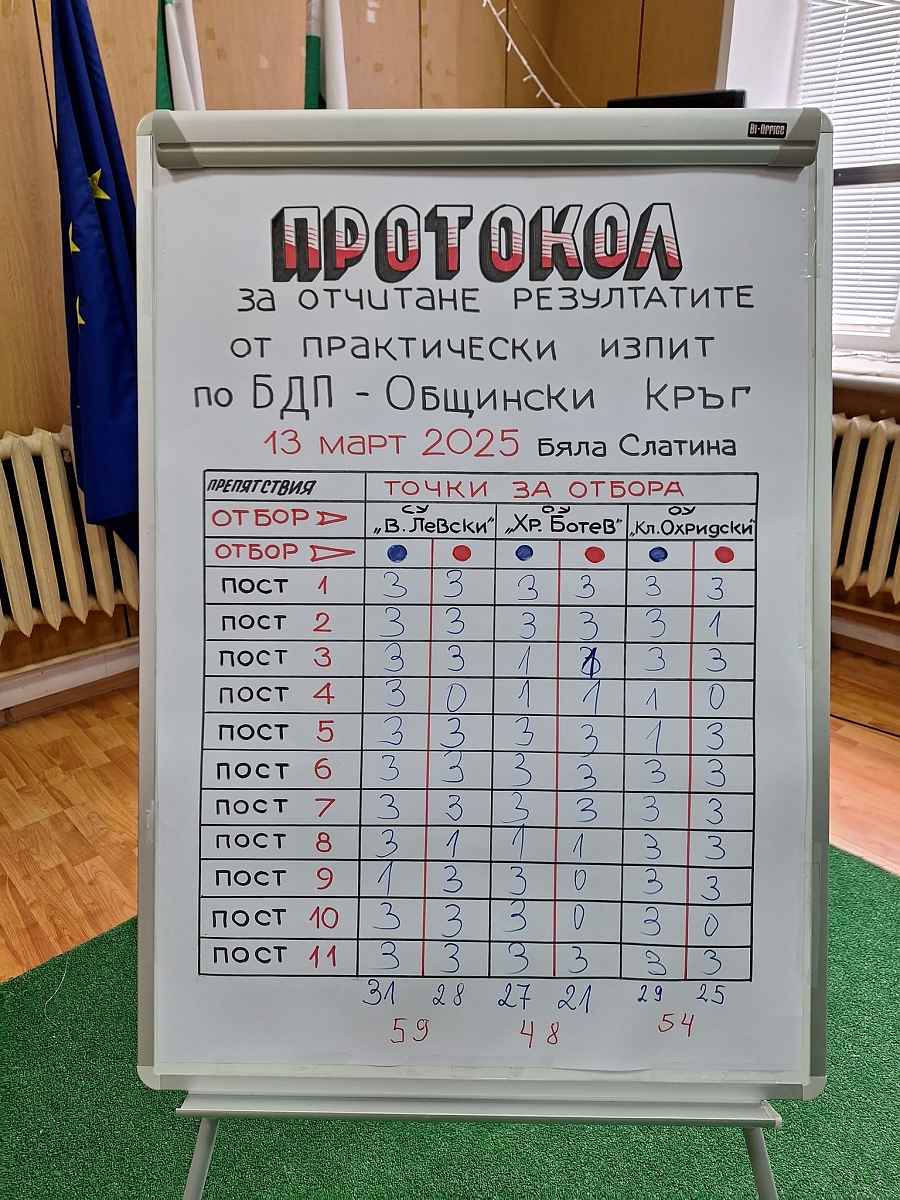 Bi-Office
ПРОТОКОЛ
за отчитане резултатите
от практически изпит
по БДП - Общински кръг
13 март 2025 Бяла Слатина
ПРЕПЯТСТВИЯ ТОЧКИ ЗА ОТБОРА
ОТБОР СУ „В. Левски" ОУ „Хр. Ботев" ОУ „Кл. Охридски"
ОТБОР
пост 1 3 3 3 3 3 3
пост 2 3 3 3 3 3 1
пост 3 3 3 1 1 3 3
пост 4 3 0 1 1 1 0
пост 5 3 3 3 3 1 3
пост 6 3 3 3 3 3 3
пост 7 3 3 3 3 3 3
пост 8 3 1 1 1 3 3
пост 9 1 3 3 0 3 3
пост 10 3 3 3 0 3 0
пост 11 3 3 3 3 3 3
31 28 27 21 29 25
59 48 54